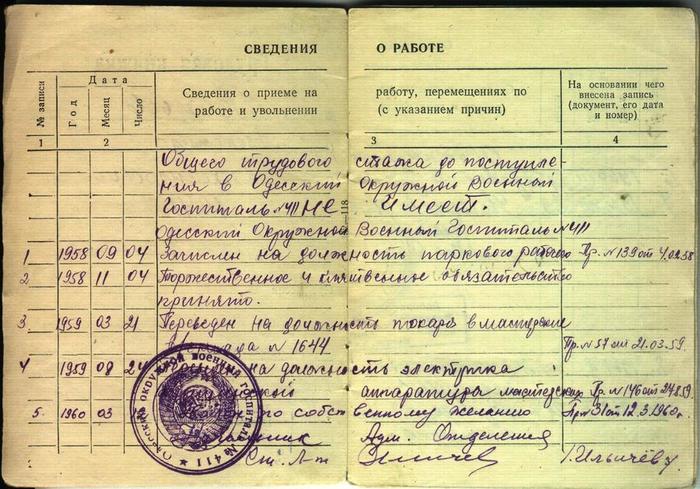 СВЕДЕНИЯ О РАБОТЕ
№ записи
Дата
Год
Месяц
Число
Сведения о приеме на работу, перемещениях по
работе и увольнении (с указанием причин)
На основании чего
внесена запись
(документ, его дата
и номер)
1 2 3 4
Общего трудового стажа до поступле-
ния в Одесский Окружной Военный
Госпиталь №411 не имеет.
Одесский Окружной Военный Госпиталь №411
1 1958 09 04 Записан на должность паркового рабочего Пр. №139 от 4.09.58
2 1958 11 04 Торжественное обязательство
принято.
3 1959 03 21 Переведен на должность токаря в мастерские
склада № 1644 Пр. №57 от 21.03.59.
4 1959 08 24 на должность электрика
аппаратуры мастерской Пр. №146 от 24.8.59.
5. 1960 03 12 по собственному желанию Пр №31 от 12.3.1960г.
Начальник Адм. Отделения
Ст. Л-т /Ильичёв/
ОДЕССКИЙ ОКРУЖНОЙ ВОЕННЫЙ ГОСПИТАЛЬ № 411
118